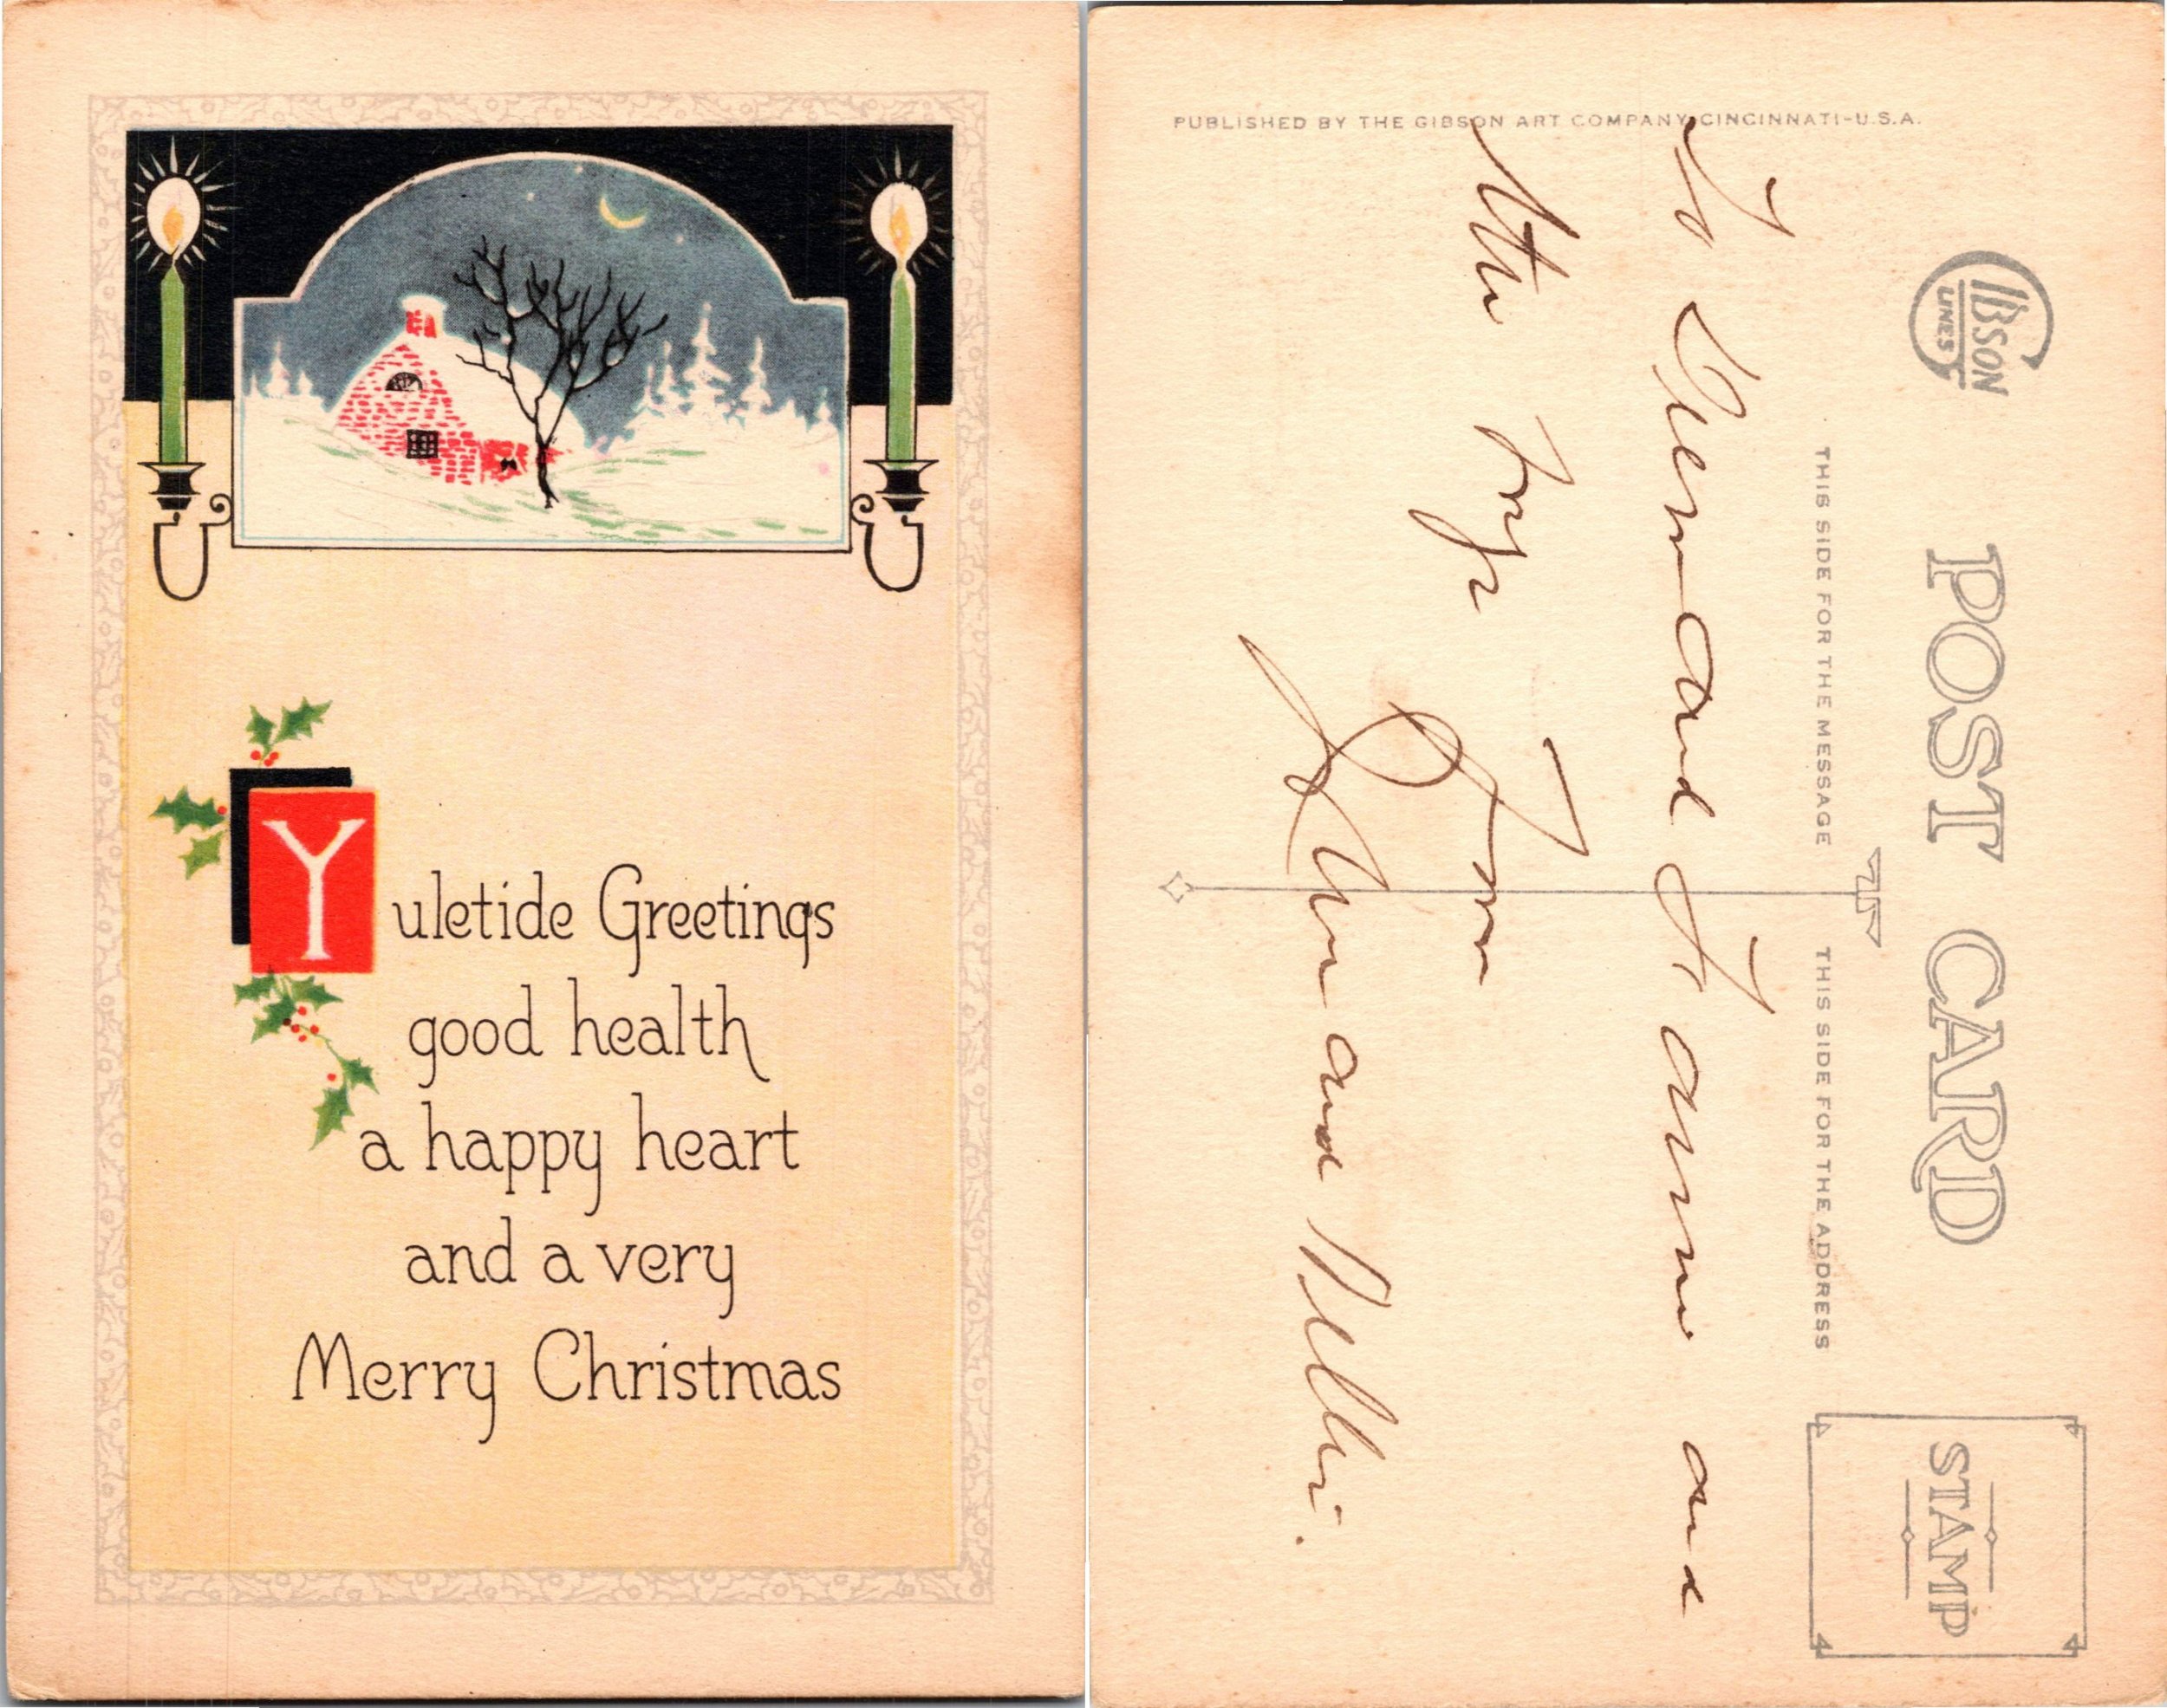 Yuletide Greetings
good health
a happy heart
and a very
Merry Christmas
PUBLISHED BY THE GIBSON ART COMPANY, CINCINNATI-U.S.A.
GIBSON
LINES
POST CARD
THIS SIDE FOR THE MESSAGE
THIS SIDE FOR THE ADDRESS
STAMP
To and Fannie and
the boys
From
and Nellie.